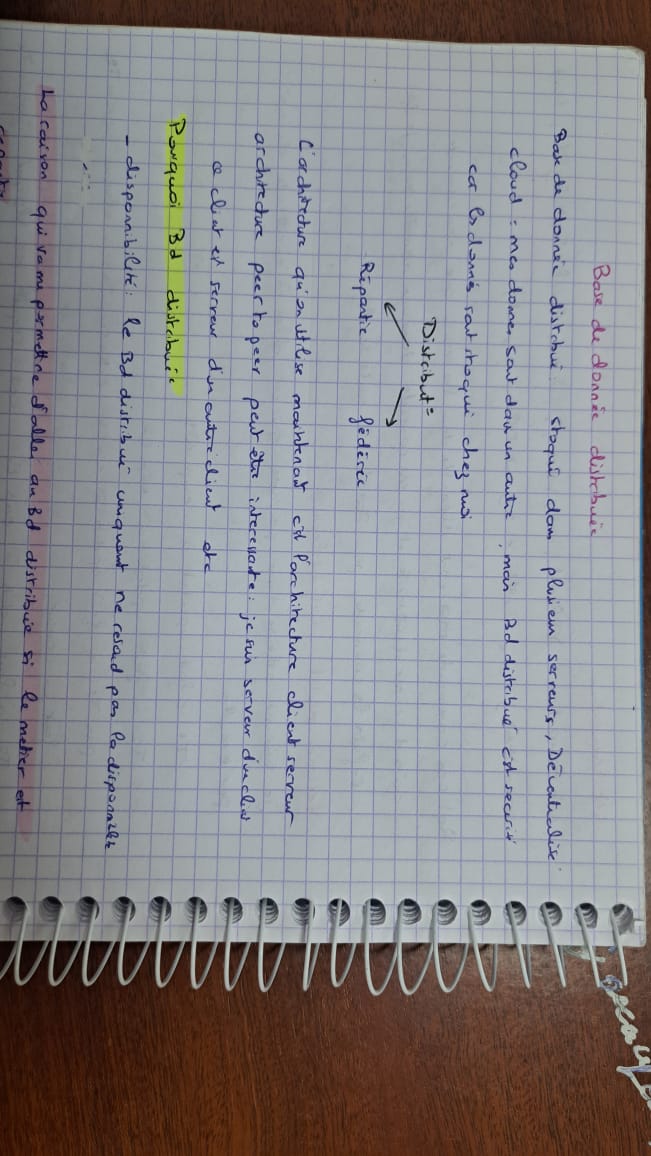 Base de donnée distribuée
Base de donnée distribué stoqué dans plusieurs serreurs, Décentralisé
cloud : mes donnes sont dans un autre, mais Bd distribué est securisé
car les donnés sont stoqué chez moi
Distribut°
Répartie fédérée
L'architecture qu'on utilise maintenant c'est l'architecture client serveur
architecture peer to peer peut être interessante : je suis serveur d'un client
ce client est serveur d'un autre client etc
Pourquoi Bd distribuée
- disponnibilité : le Bd distribué uniquement ne resoud pas la disponnibilité
La raison qui va me permettre d'aller au Bd distribuée si le metier est